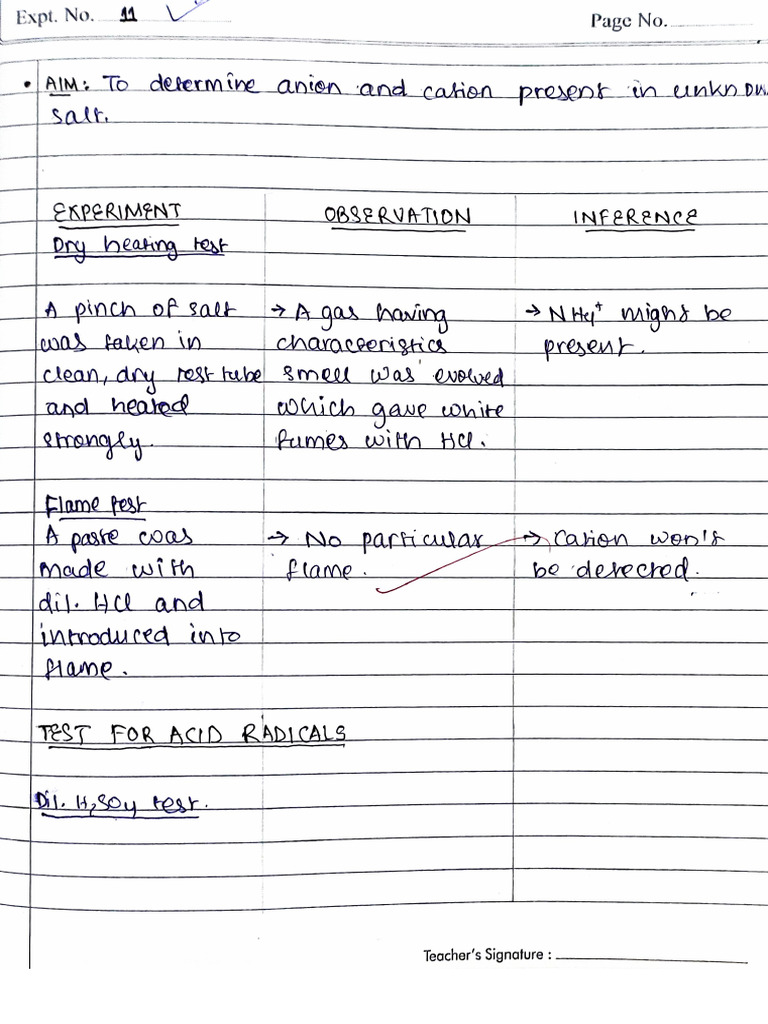 Expt. No. 11
Page No.
• AIM: To determine anion and cation present in unknow
salt.
EXPERIMENT OBSERVATION INFERENCE
Dry heating test
A pinch of salt → A gas having → NH4+ might be
was taken in characteeristics present.
clean, dry test tube smell was evolved
and heated which gave white
strongly. fumes with HCl.
Flame test
A paste was → No particular → Cation won't
made with flame. be detected.
dil. HCl and
introduced into
flame.
TEST FOR ACID RADICALS
Dil. H2SO4 test.
Teacher's Signature :